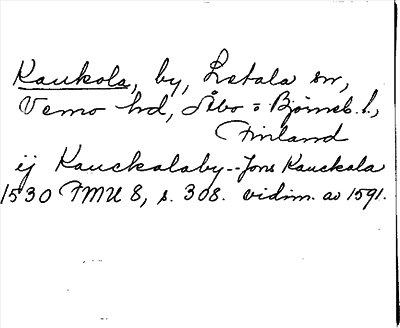 Kaukola, by, Letala sn,
Vemo hd, Åbo = Björneb. l.,
Finland
ij Kauckalaby -- Jons Kauckala
1530 FMU 8, s. 308. vidim. av 1591.